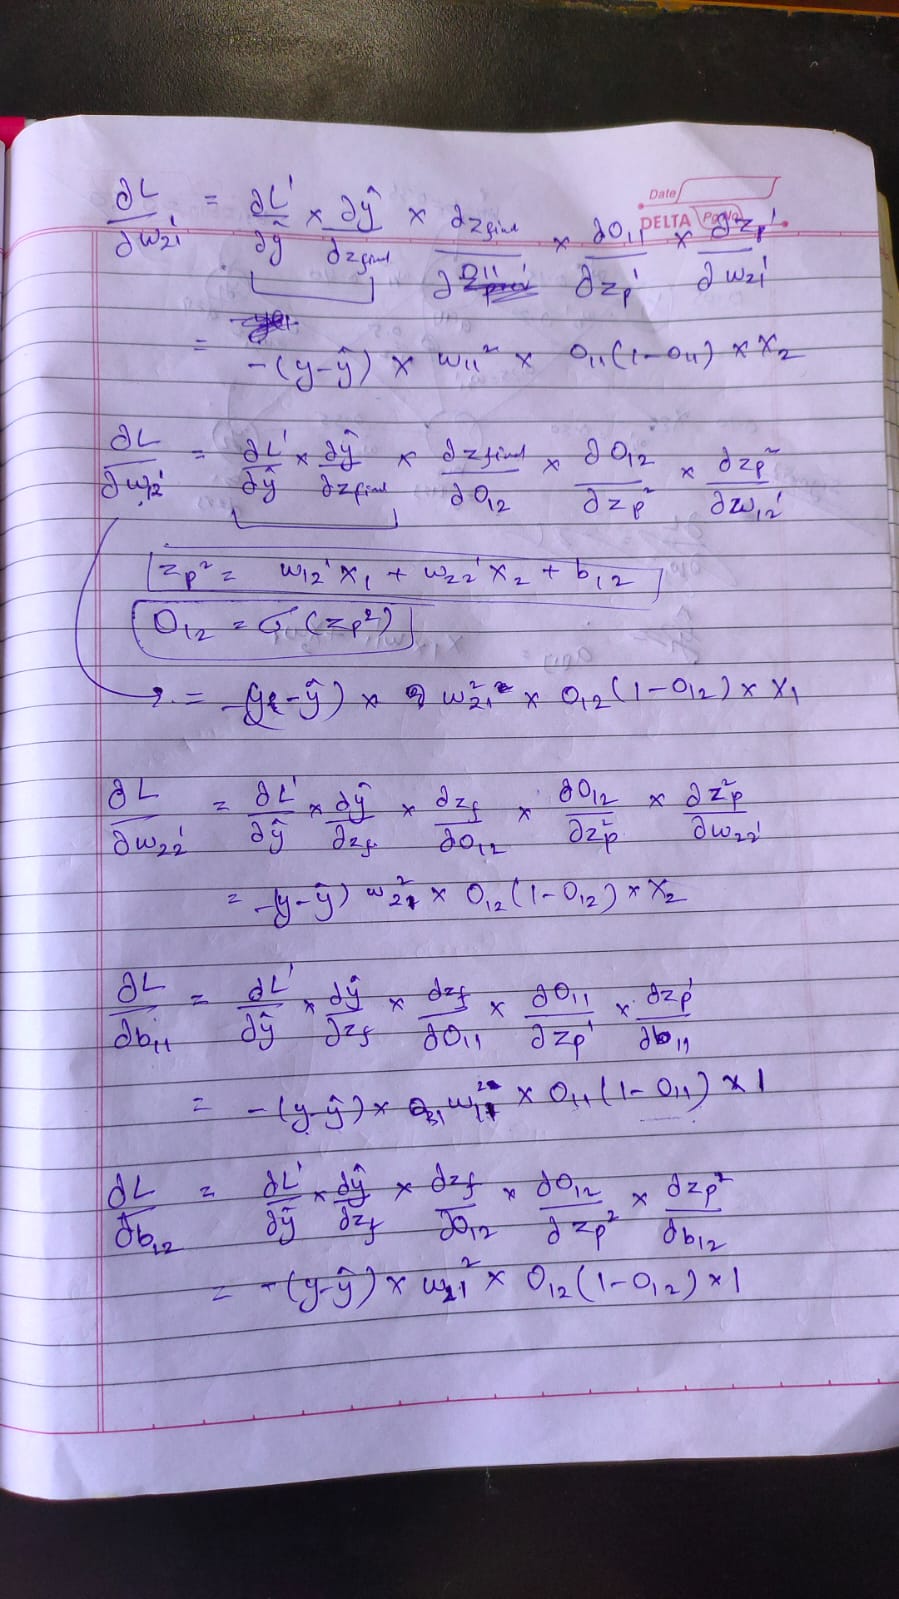 Date
DELTA Pg No
∂L/∂w₂₁¹ = ∂L'/∂ŷ × ∂ŷ/∂z_final × ∂z_final/∂O₁₁ × ∂O₁₁/∂z_p¹ × ∂z_p¹/∂w₂₁¹
= -(y-ŷ) × w₁₁² × O₁₁(1-O₁₁) × X₂
∂L/∂w₁₂¹ = ∂L'/∂ŷ × ∂ŷ/∂z_final × ∂z_final/∂O₁₂ × ∂O₁₂/∂z_p² × ∂z_p²/∂w₁₂¹
z_p² = w₁₂¹x₁ + w₂₂¹x₂ + b₁₂
O₁₂ = σ(z_p²)
= -(y-ŷ) × w₂₁² × O₁₂(1-O₁₂) × X₁
∂L/∂w₂₂¹ = ∂L'/∂ŷ × ∂ŷ/∂z_f × ∂z_f/∂O₁₂ × ∂O₁₂/∂z_p² × ∂z_p²/∂w₂₂¹
= -(y-ŷ) w₂₁² × O₁₂(1-O₁₂) × X₂
∂L/∂b₁₁ = ∂L'/∂ŷ × ∂ŷ/∂z_f × ∂z_f/∂O₁₁ × ∂O₁₁/∂z_p¹ × ∂z_p¹/∂b₁₁
= -(y-ŷ) × w₁₁² × O₁₁(1-O₁₁) × 1
∂L/∂b₁₂ = ∂L'/∂ŷ × ∂ŷ/∂z_f × ∂z_f/∂O₁₂ × ∂O₁₂/∂z_p² × ∂z_p²/∂b₁₂
= -(y-ŷ) × w₂₁² × O₁₂(1-O₁₂) × 1